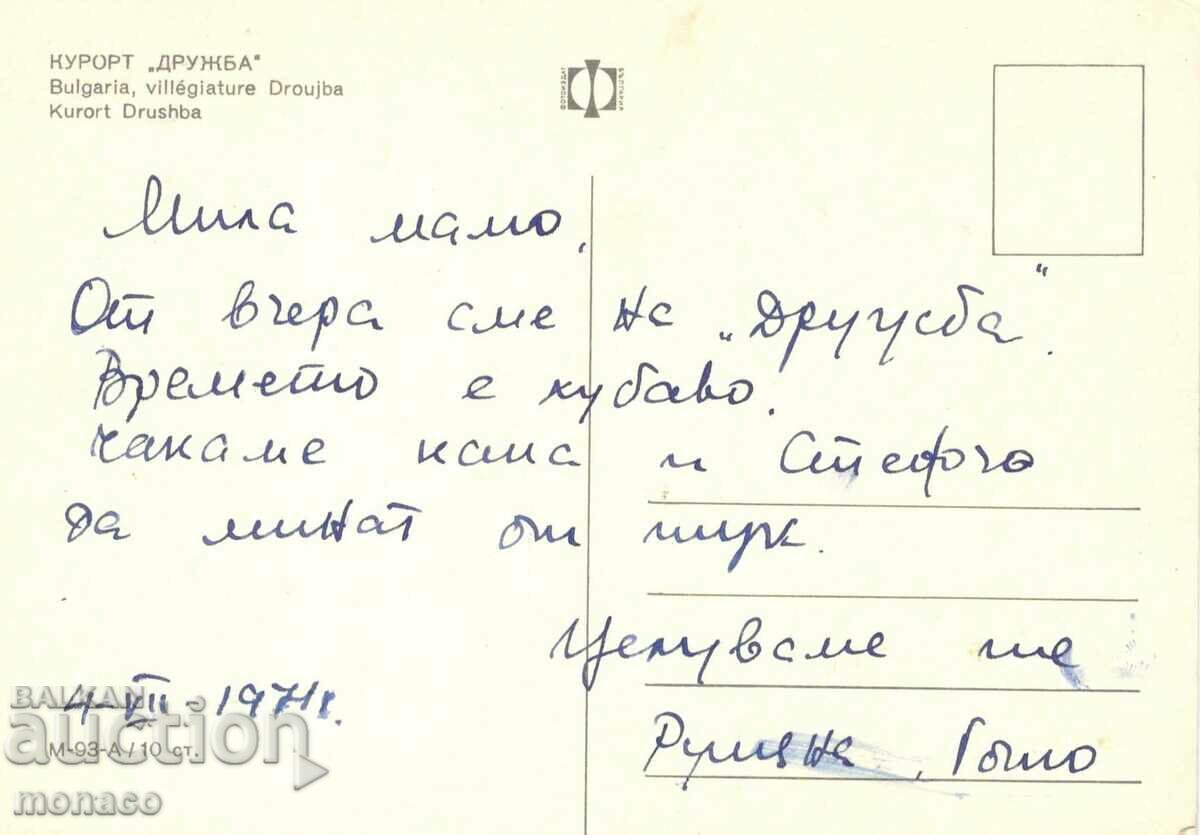 КУРОРТ „ДРУЖБА"
Bulgaria, villégiature Droujba
Kurort Drushba
ФОТОИЗДАТ БЪЛГАРИЯ
Мила мамо,
От вчера сме на „Дружба".
Времето е хубаво.
Чакаме кака и Стефчо
да минат от тук.
Целуваме те
Румяна, Гошо
4-VII-1971г.
М-93-А / 10 ст.
BALKAN
auction
monaco